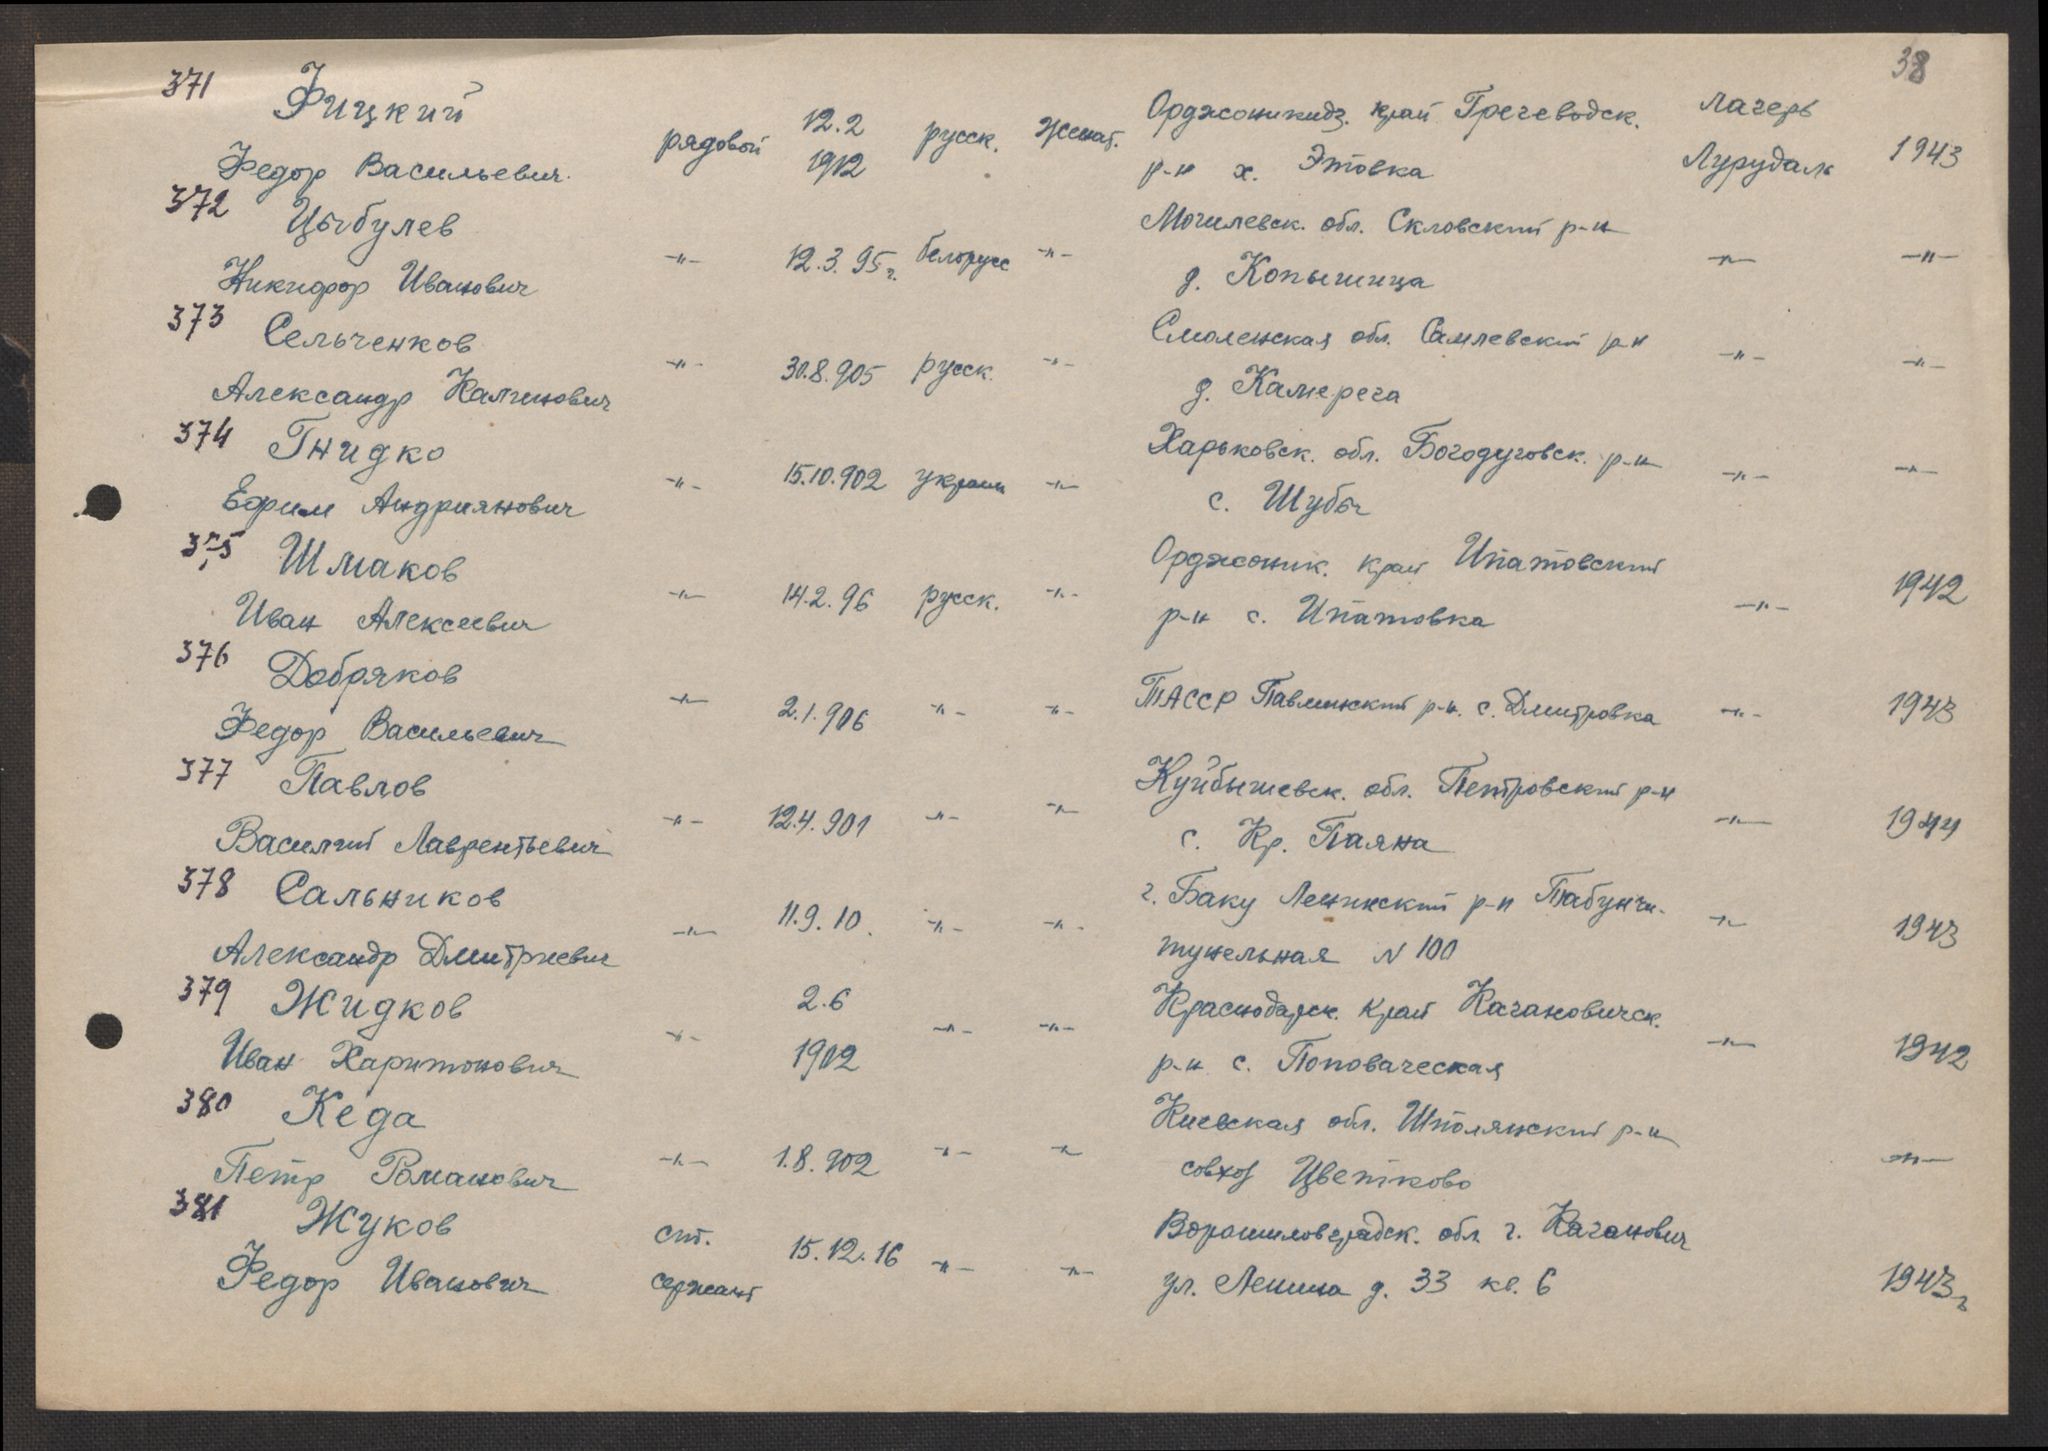 38
371 Фицкий
Федор Васильевич рядовой 12.2 1912 русск. женат. Орджоникидз. край Гречеводск. р-н х. Этовка лагерь Лурудаль 1943
372 Цыбулев
Никифор Иванович -"- 12.3.95г. белорусс -"- Могилевск. обл. Скловский р-н д. Копышица -"- -"-
373 Сельченков
Александр Калинович -"- 30.8.905 русск. -"- Смоленская обл. Самлевский р-н д. Камерега -"- -"-
374 Гнидко
Ефим Андриянович -"- 15.10.902 украин -"- Харьковск. обл. Богодуховск. р-н с. Шубы -"- -"-
375 Шмаков
Иван Алексеевич -"- 14.2.96 русск. -"- Орджоник. край Ипатовский р-н с. Ипатовка -"- 1942
376 Добряков
Федор Васильевич -"- 2.1.906 -"- -"- ТАССР Павлинский р-н. с. Дмитровка -"- 1943
377 Павлов
Василий Лаврентьевич -"- 12.4.901 -"- -"- Куйбышевск. обл. Петровский р-н с. Кр. Паяна -"- 1944
378 Сальников
Александр Дмитриевич -"- 11.9.10. -"- -"- г. Баку Ленинский р-н Табунчи- тунельная N 100 -"- 1943
379 Жидков
Иван Харитонович -"- 2.6 1902 -"- -"- Краснодарск. край Кагановичск. р-н с. Поповаческая -"- 1942
380 Кеда
Петр Романович -"- 1.8.902 -"- -"- Киевская обл. Шполянский р-н совхоз Цветково -"-
381 Жуков
Федор Иванович ст. сержант 15.12.16 -"- -"- Ворошиловградск. обл. г. Каганович ул. Ленина д. 33 кв. 6 1943г